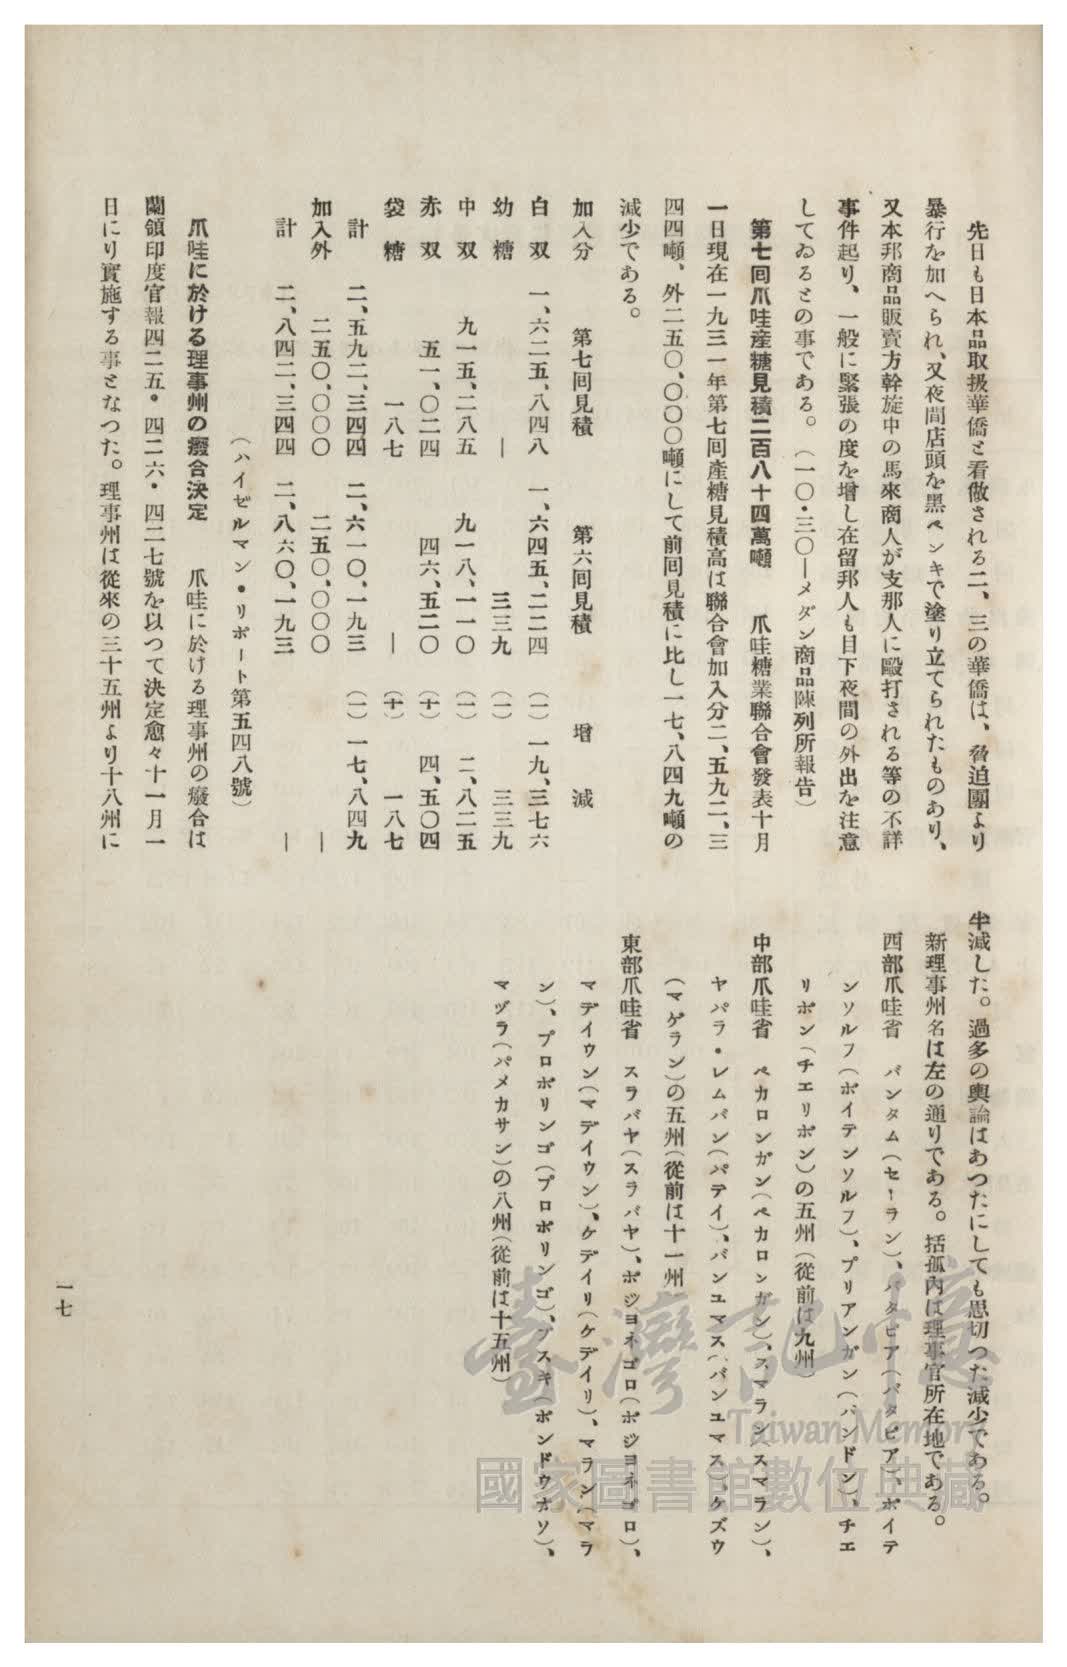 先日も日本品取扱華僑と看做される二、三の華僑は、脅迫團より
暴行を加へられ、又夜間店頭を黑ペンキで塗り立てられたものあり、
又本邦商品販賣方幹旋中の馬來商人が支那人に毆打される等の不詳
事件起り、一般に緊張の度を增し在留邦人も目下夜間の外出を注意
してゐるとの事である。（一〇・三〇―メダン商品陳列所報告）
第七回爪哇產糖見積二百八十四萬噸　爪哇糖業聯合會發表十月
一日現在一九三一年第七回產糖見積高は聯合會加入分二、五九二、三
四四噸、外二五〇、〇〇〇噸にして前回見積に比し一七、八四九噸の
減少である。
加入分　第七回見積　第六回見積　增減
白双　一、六二五、八四八　一、六四五、二二四　（一）一九、三七六
幼糖　―　三三九　（一）三三九
中双　九一五、二八五　九一八、一一〇　（一）二、八二五
赤双　五一、〇二四　四六、五二〇　（十）四、五〇四
袋糖　一八七　―　（十）一八七
計　二、五九二、三四四　二、六一〇、一九三　（一）一七、八四九
加入外　二五〇、〇〇〇　二五〇、〇〇〇　―
計　二、八四二、三四四　二、八六〇、一九三　―
（ハイゼルマン・リポート第五四八號）
爪哇に於ける理事州の癈合決定　爪哇に於ける理事州の癈合は
蘭領印度官報四二五・四二六・四二七號を以つて決定愈々十一月一
日にり實施する事となつた。理事州は從來の三十五州より十八州に
半減した。過多の輿論はあつたにしても思切つた減少である。
新理事州名は左の通りである。括孤內は理事官所在地である。
西部爪哇省　バンタム（セーラン）、バタビア（バタビア）、ボイテ
ンソルフ（ボイテンソルフ）、プリアンガン（バンドン）、チエ
リボン（チエリボン）の五州（從前は九州）
中部爪哇省　ペカロンガン（ペカロンガン）、スマラン（スマラン）、
ヤパラ・レムバン（パテイ）、バンユマス（バンユマス）、ケズウ
（マゲラン）の五州（從前は十一州）
東部爪哇省　スラバヤ（スラバヤ）、ボジヨネゴロ（ボジヨネゴロ）、
マデイウン（マデイウン）、ケデイリ（ケデイリ）、マラン（マラ
ン）、プロボリンゴ（プロボリンゴ）、ブスキ（ボンドウオソ）、
マヅラ（パメカサン）の八州（從前は十五州）
一七
臺灣記憶
Taiwan Memory
國家圖書館數位典藏